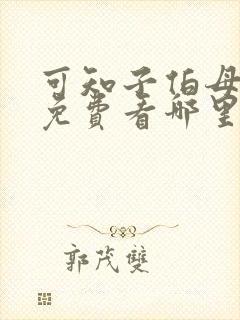 可知子伯母
免费看哪里
郭茂双